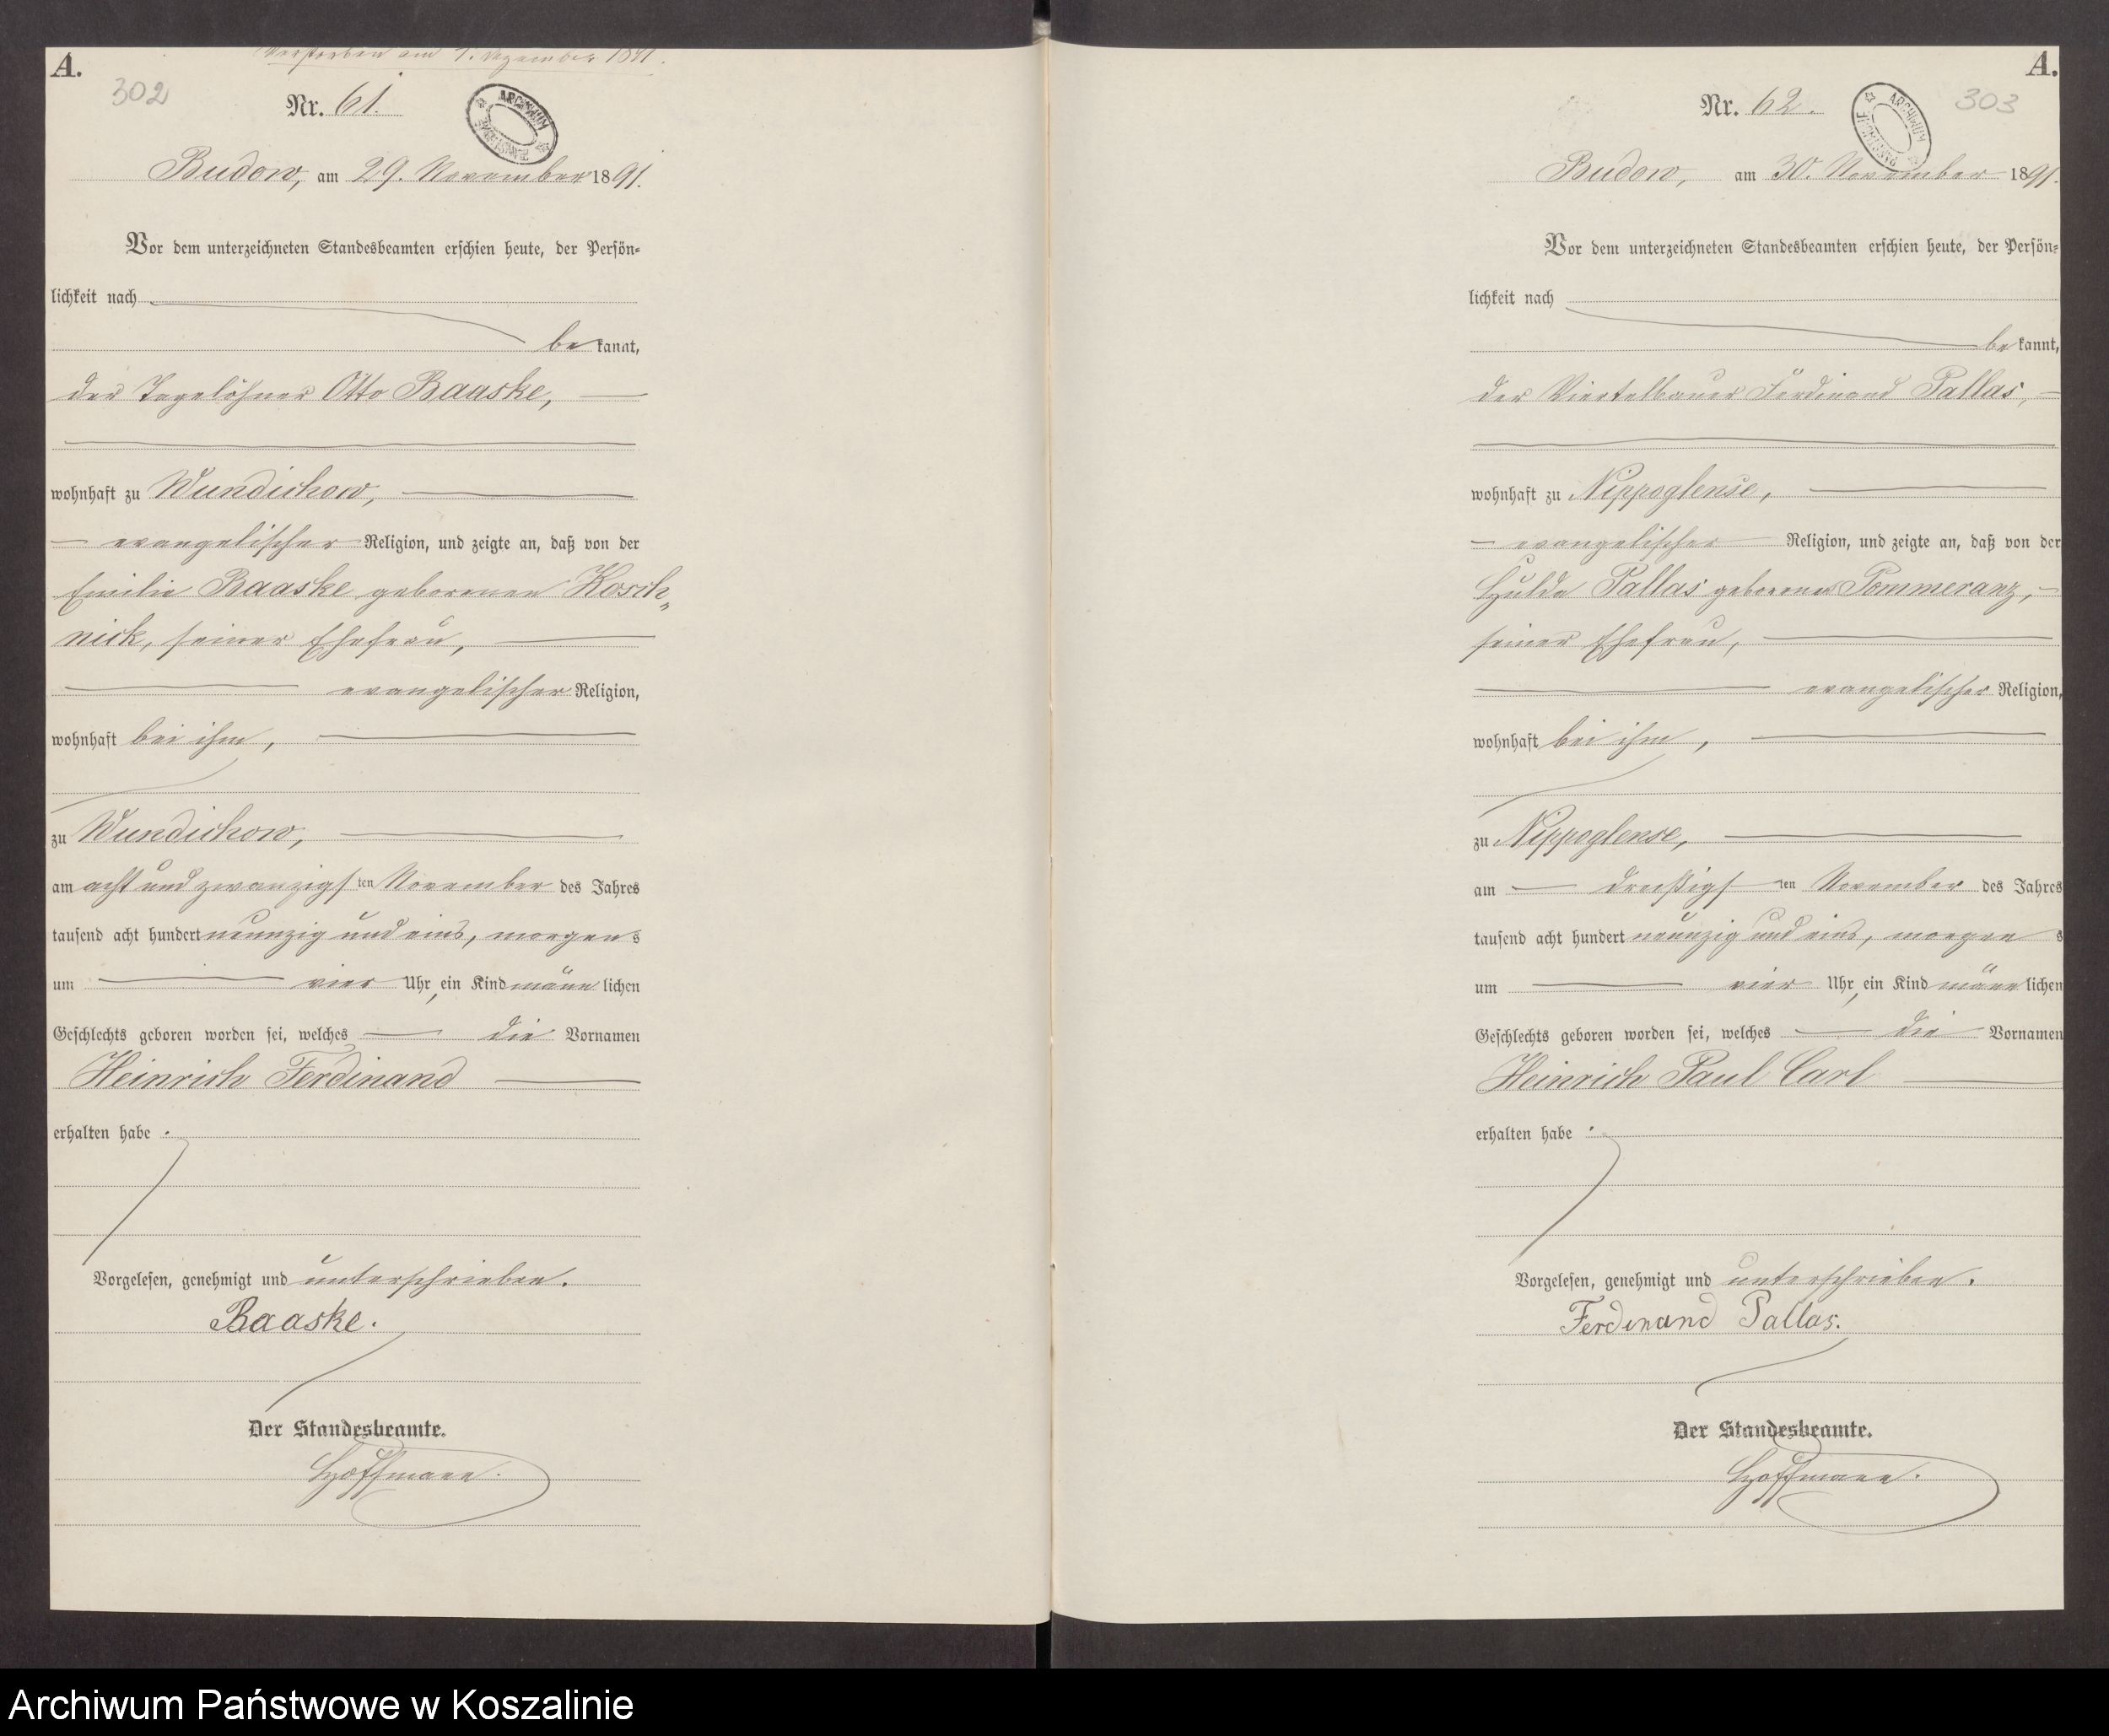 A.
Verstorben am 1. Dezember 1891.
302
Nr. 61.
ARCHIWUM
Budow, am 29. November 1891.
Vor dem unterzeichneten Standesbeamten erschien heute, der Persön-
lichkeit nach
be kannt,
der Tagelöhner Otto Baaske,
wohnhaft zu Wundichow,
evangelischer Religion, und zeigte an, daß von der
Emilie Baaske geborenen Kosch-
nick, seiner Ehefrau,
evangelischer Religion,
wohnhaft bei ihm,
zu Wundichow,
am acht und zwanzigsten November des Jahres
tausend acht hundert neunzig und eins, morgens
um vier Uhr, ein Kind männlichen
Geschlechts geboren worden sei, welches die Vornamen
Heinrich Ferdinand
erhalten habe.
Vorgelesen, genehmigt und unterschrieben.
Baaske.
Der Standesbeamte.
Hoffmann.
A.
303
Nr. 62.
ARCHIWUM
Budow, am 30. November 1891.
Vor dem unterzeichneten Standesbeamten erschien heute, der Persön-
lichkeit nach
be kannt,
der Viertelbauer Ferdinand Pallas,
wohnhaft zu Nippoglense,
evangelischer Religion, und zeigte an, daß von der
Hulda Pallas geborenen Pommeranz,
seiner Ehefrau,
evangelischer Religion,
wohnhaft bei ihm,
zu Nippoglense,
am dreißigsten November des Jahres
tausend acht hundert neunzig und eins, morgens
um vier Uhr, ein Kind männlichen
Geschlechts geboren worden sei, welches die Vornamen
Heinrich Paul Carl
erhalten habe.
Vorgelesen, genehmigt und unterschrieben.
Ferdinand Pallas.
Der Standesbeamte.
Hoffmann.
Archiwum Państwowe w Koszalinie